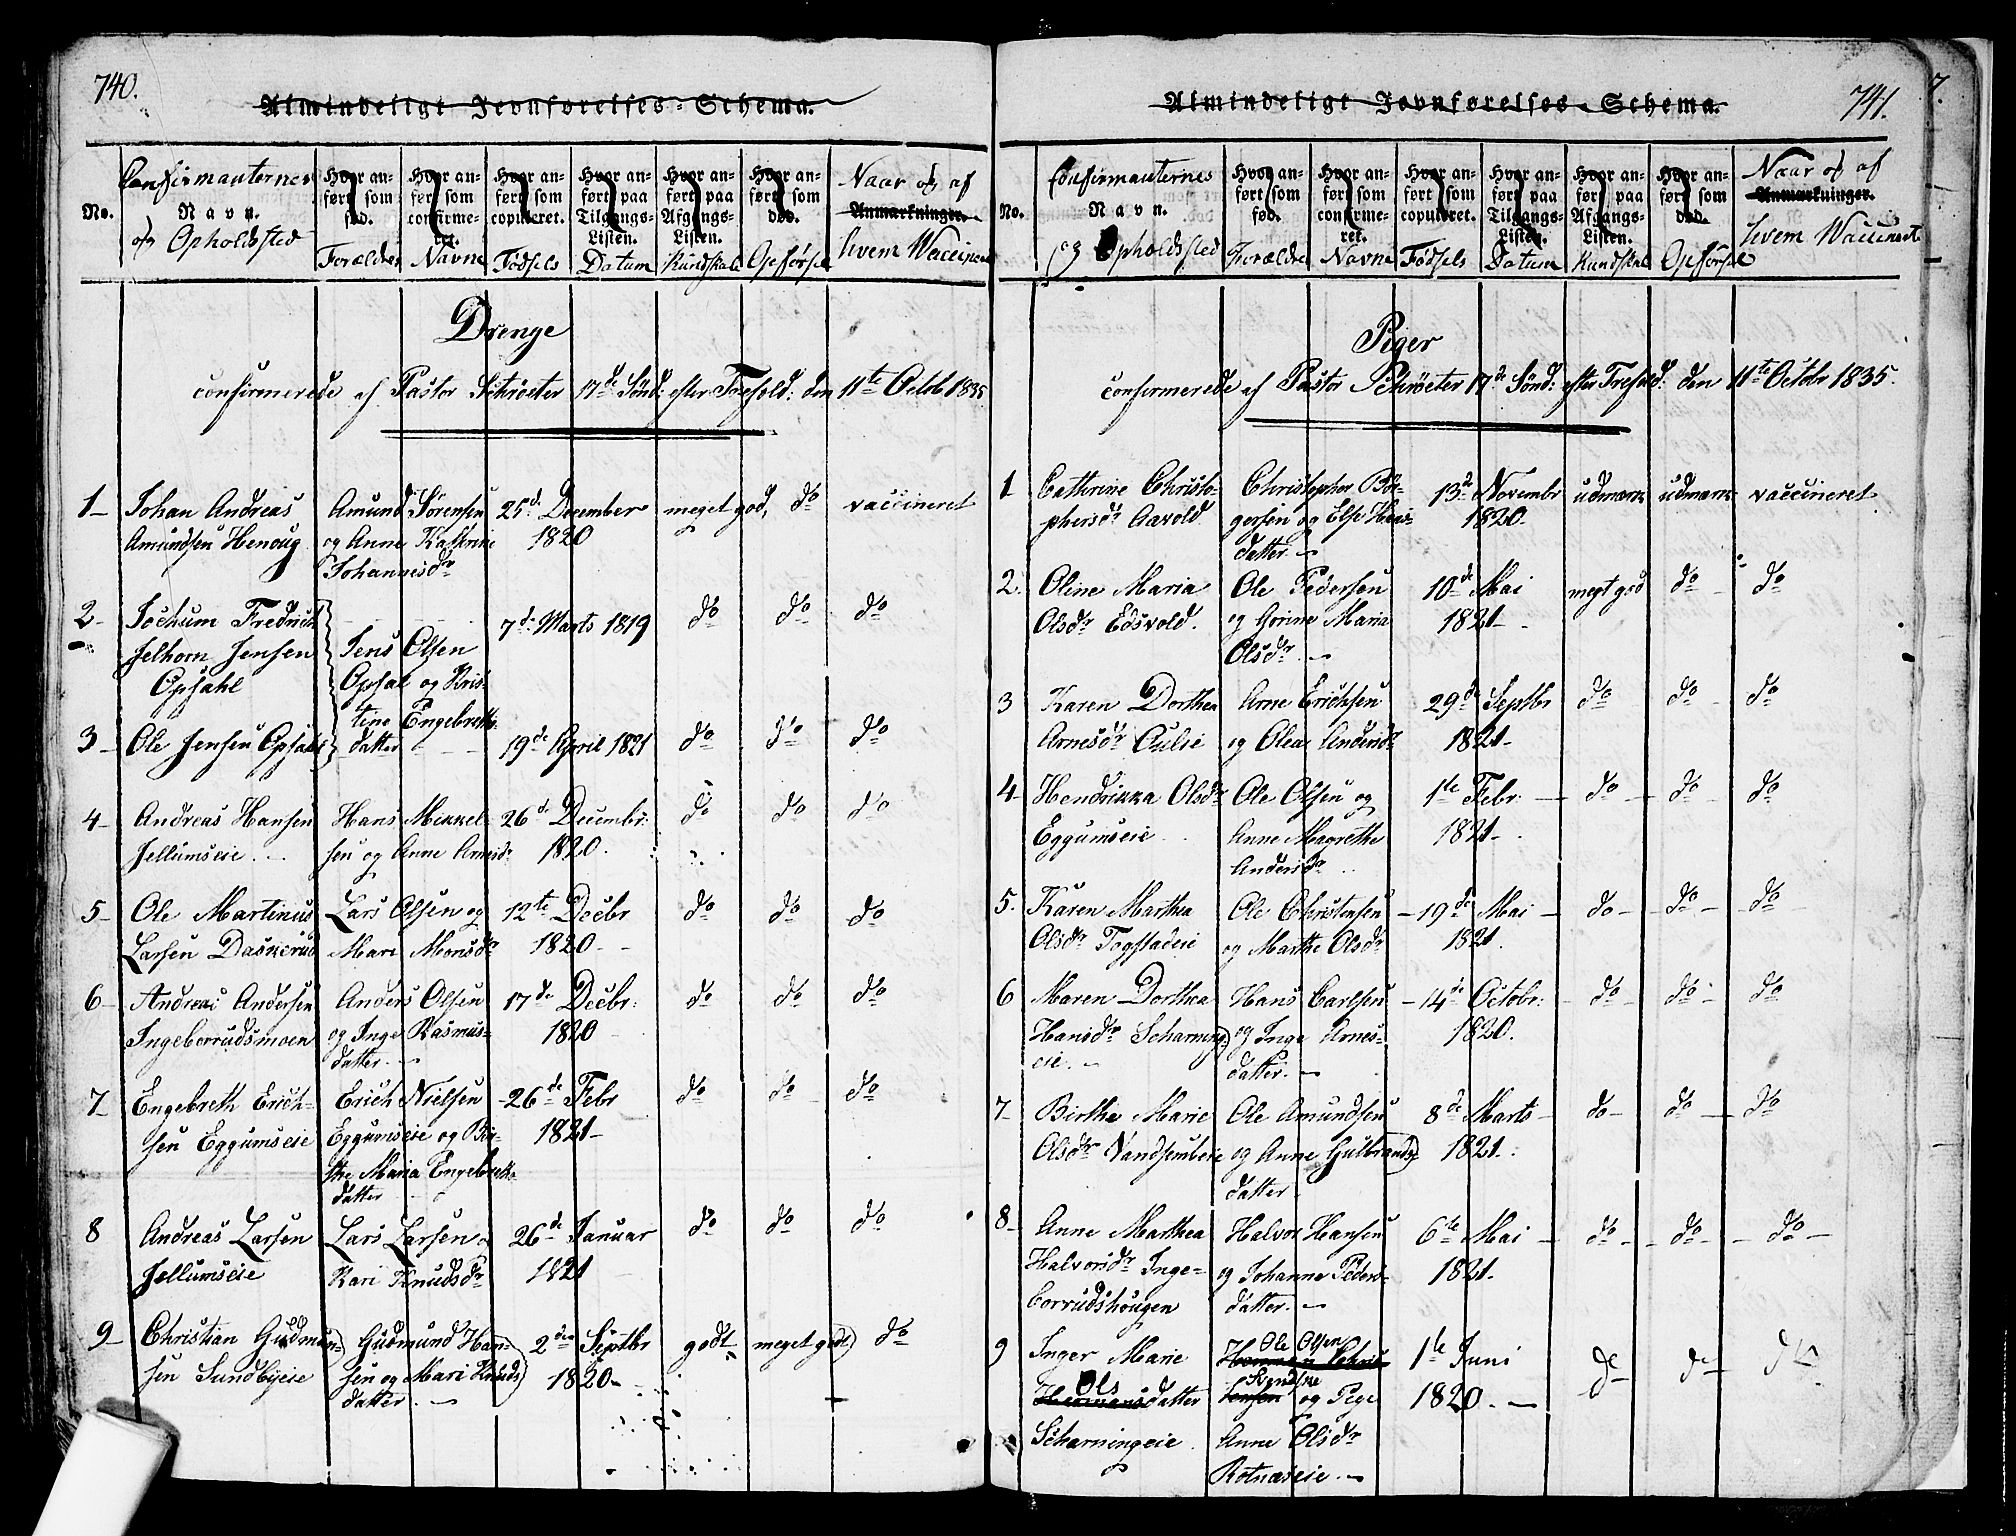 740.
Almindeligt Jevnførelses-Schema.
No.
Confirmanternes
Navn.
og Opholdsted
Hvor anført som fød.
Forældres
Hvor anført som confirmeret.
Navne
Hvor anført som copuleret.
Fødsels
Hvor anført paa Tilgangs-Listen.
Datum
Hvor anført paa Afgangs-Listen.
Kundskab
Hvor anført som død.
Opførsel
Naar og af
Anmærkninger.
hvem Vaccineret
Drenge
confirmerede af Pastor Schrøeter 17de Sønd: efter Trefold: den 11te Octob 1835
1 Johan Andreas Amund Sørensen 25d December meget god, do vaccineret
Amundsen Henoug og Anne Kathrine 1820
Johannesdr
2 Jochum Fredrich 7de Marts 1819 do do do
Jelhorn Jensen Jens Olsen
Opsahl Opsal og Kris-
tine Engebreths-
3 Ole Jensen Opsahl datter 19de April 1821 do do do
4 Andreas Hansen Hans Mikkel- 26d Decembr: do do do
Jellumseie sen og Anne Arnesdr 1820.
5 Ole Martinus Lars Olsen og 12te Decbr do do do
Larsen Daskerud Mari Monsdr 1820
6 Andreas Andersen Anders Olsen 17de Decbr: do do do
Ingeborrudsmoen og Inge Rasmus- 1820
datter
7 Engebreth Erich- Erich Nielsen 26de Febr do do do
sen Eggumseie Eggumseie og Bir- 1821
the Maria Engebreths-
datter
8 Andreas Larsen Lars Larsen og 26de Januar do do do
Jellumseie Kari Knudsdr 1821
9 Christian Gudmun- Gudmund Han- 2den Septbr godt meget godt do
sen Sundbyeie sen og Mari Knuds 1820
datter.
741.
Almindeligt Jevnførelses-Schema.
No.
Confirmanternes
Navn.
og Opholdsted
Hvor anført som fød.
Forældre
Hvor anført som confirmeret.
Navne
Hvor anført som copuleret.
Fødsels
Hvor anført paa Tilgangs-Listen.
Datum
Hvor anført paa Afgangs-Listen.
Kundskab
Hvor anført som død.
Opførsel
Naar og af
Anmærkninger.
hvem Vaccineret
Piger
confirmerede af Pastor Schrøeter 17de Sønd: efter Trefold: den 11te Octobr 1835.
1 Cathrine Christo- Christopher Bør- 13de Novembr udmærk udmærk vaccineret
phersdr Aavold gersen og Else Hans- 1820
datter
2. Oline Maria Ole Pedersen 10de Mai megt god do do
Olsdr Edsvold. og Gorine Maria 1821
Olsdr
3 Karen Dorthea Arne Erichsen 29de Septbr do do do
Arnesdr Aulie og Olea Andersdr 1821
4 Hendrikka Olsdr Ole Olsen og 1te Febr: do do do
Eggumseie Anne Magrethe 1821
Andersdr
5. Karen Marthea Ole Christensen 19de Mai do do do
Olsdr Togstadeie og Marthe Olsdr 1821.
6 Maren Dorthea Hans Carlsen 14de Octobr: do do do
Hansdr Scharning- og Inge Arnes- 1820.
eie. datter.
7 Birthe Marie Ole Amundsen 8de Marts do do do
Olsdr Vandsembeie og Anne Gulbrands 1821.
datter
8 Anne Marthea Halvor Hansen 6te Mai do do do
Halvorsdr Inge- og Johanne Peders- 1821.
borrudshougen datter.
9 Inger Marie Ole Olsen 1te Juni do do do
Ols datter Svendske og Pige 1820.
Scharningeie Anne Olsdr
Rotnæseie.
7.